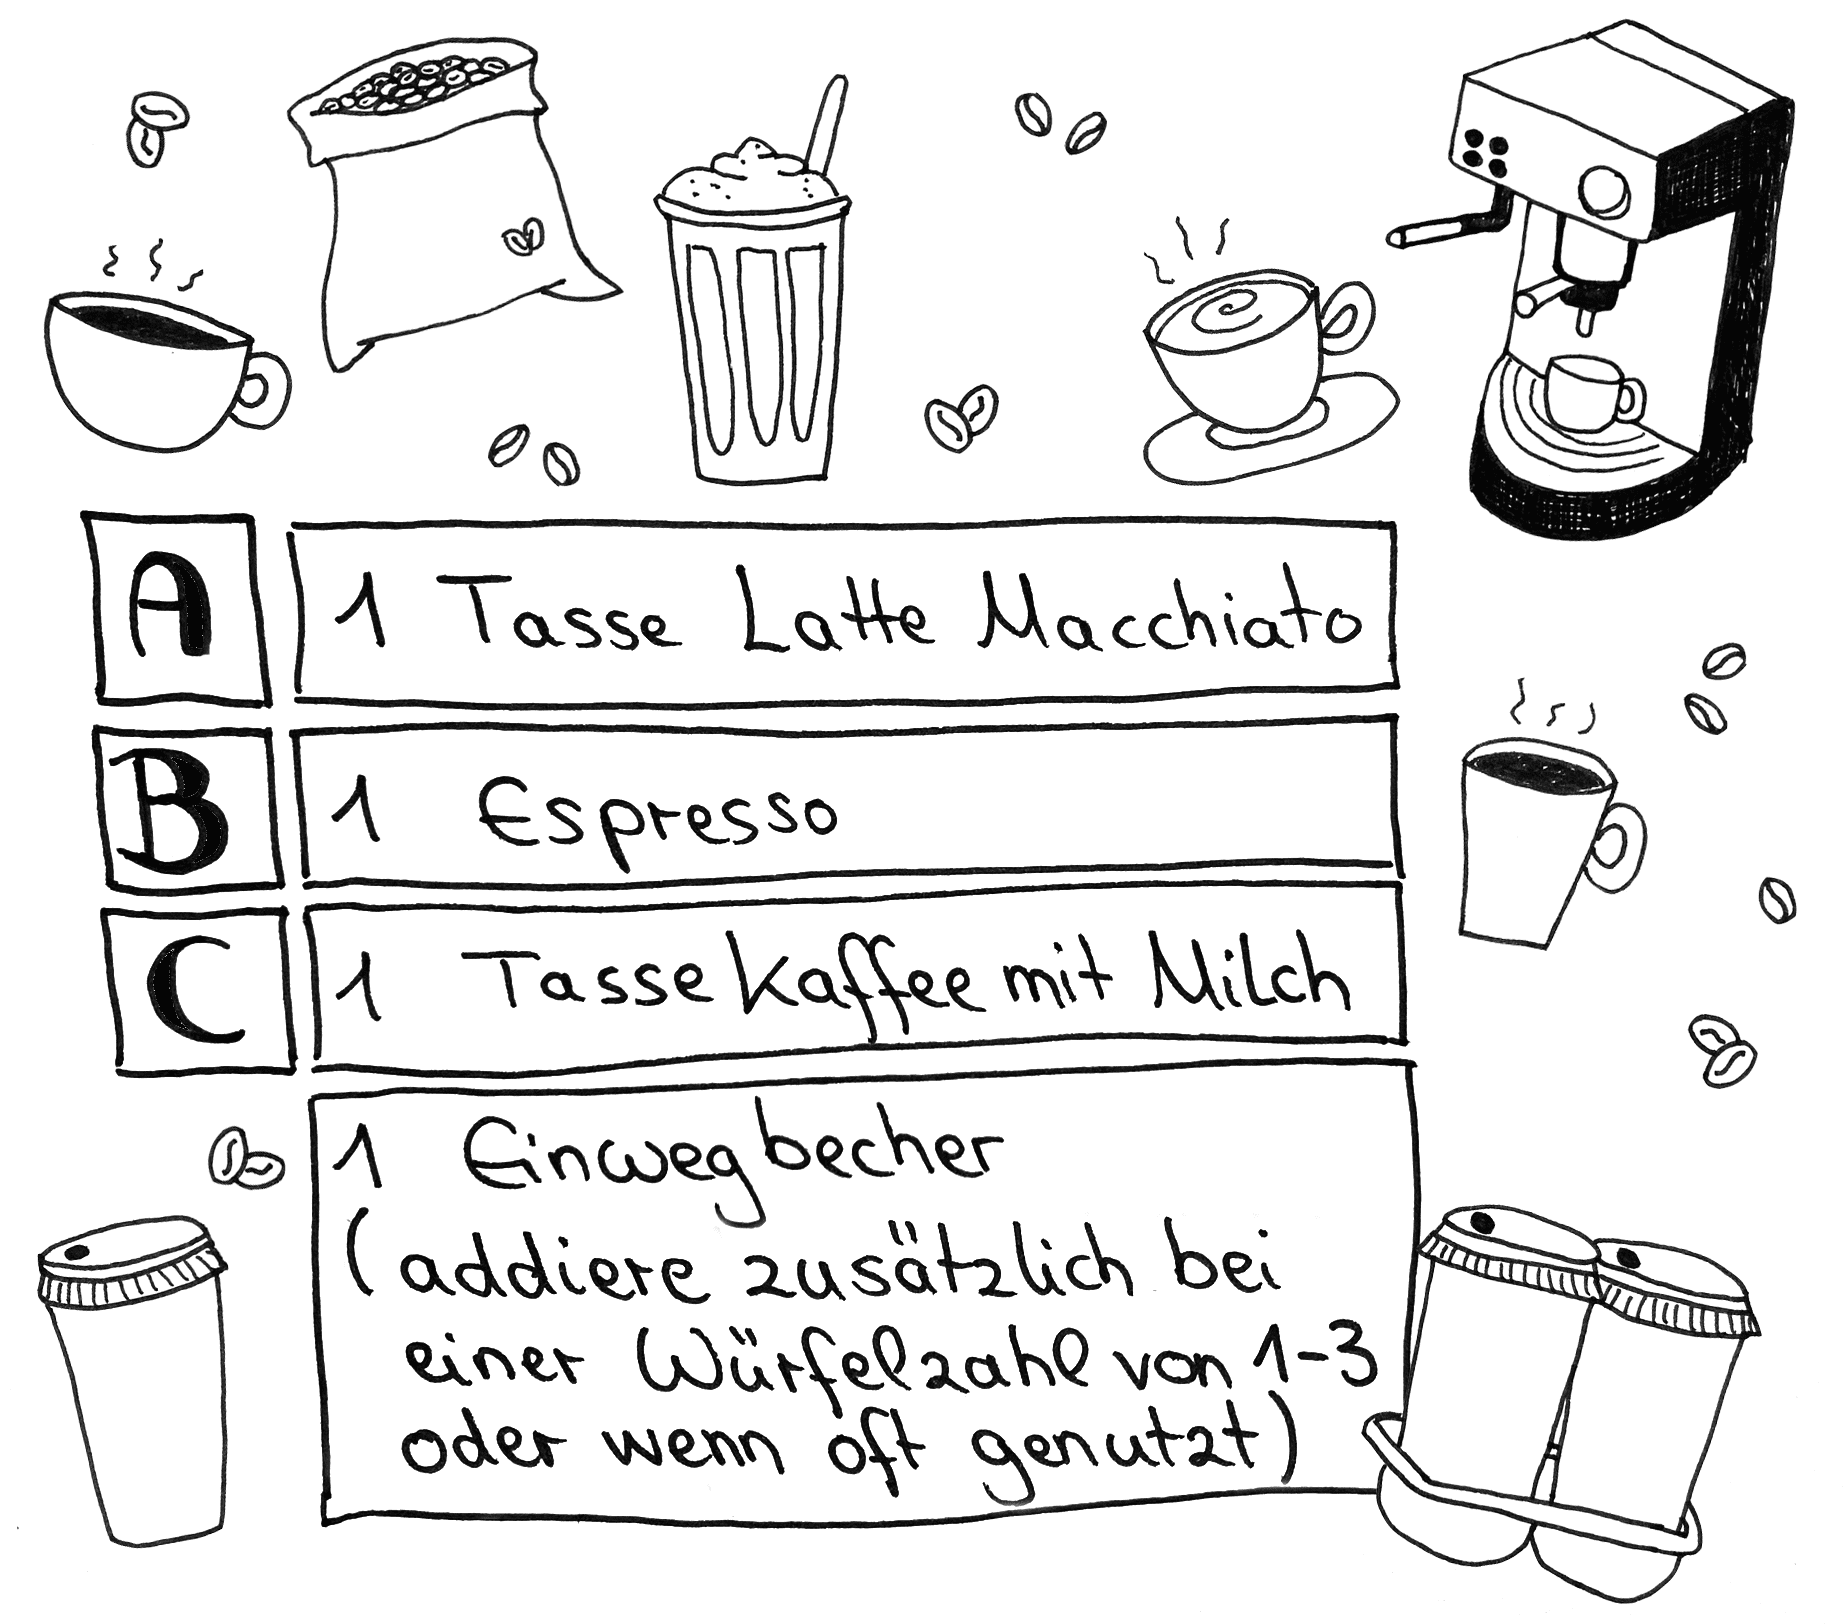 A 1 Tasse Latte Macchiato
B 1 Espresso
C 1 Tasse Kaffee mit Milch
1 Einwegbecher
(addiere zusätzlich bei
einer Würfelzahl von 1-3
oder wenn oft genutzt)